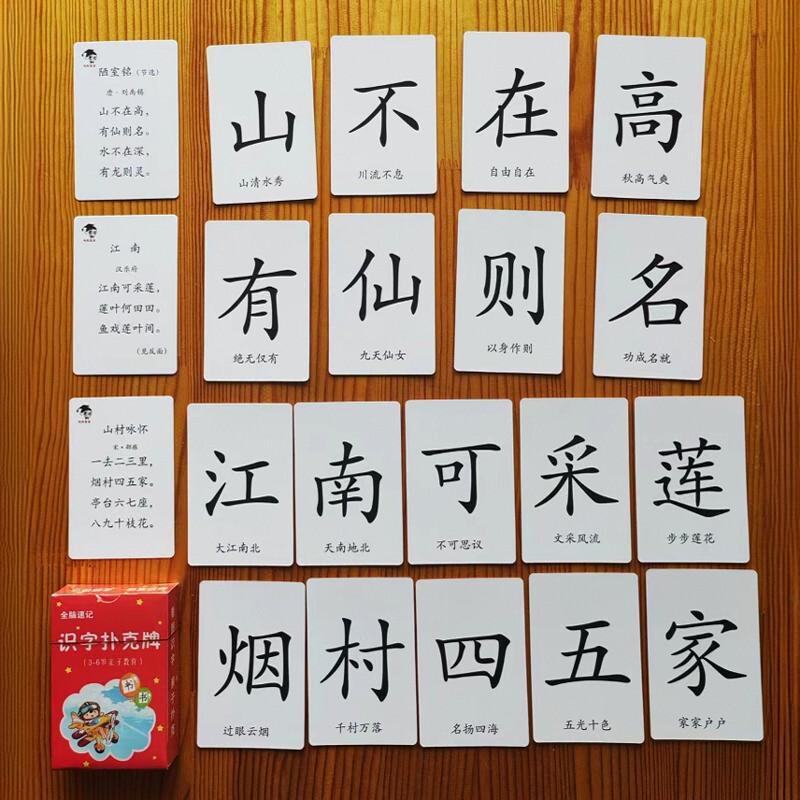 陋室铭(节选)
唐·刘禹锡
山不在高,
有仙则名。
水不在深,
有龙则灵。
山
山清水秀
不
川流不息
在
自由自在
高
秋高气爽
江 南
汉乐府
江南可采莲,
莲叶何田田。
鱼戏莲叶间。
(见反面)
有
绝无仅有
仙
九天仙女
则
以身作则
名
功成名就
山村咏怀
宋·邵雍
一去二三里,
烟村四五家。
亭台六七座,
八九十枝花。
江
大江南北
南
天南地北
可
不可思议
采
文采风流
莲
步步莲花
全脑速记
识字扑克牌
(3-6岁亲子教育)
书
烟
过眼云烟
村
千村万落
四
名扬四海
五
五光十色
家
家家户户